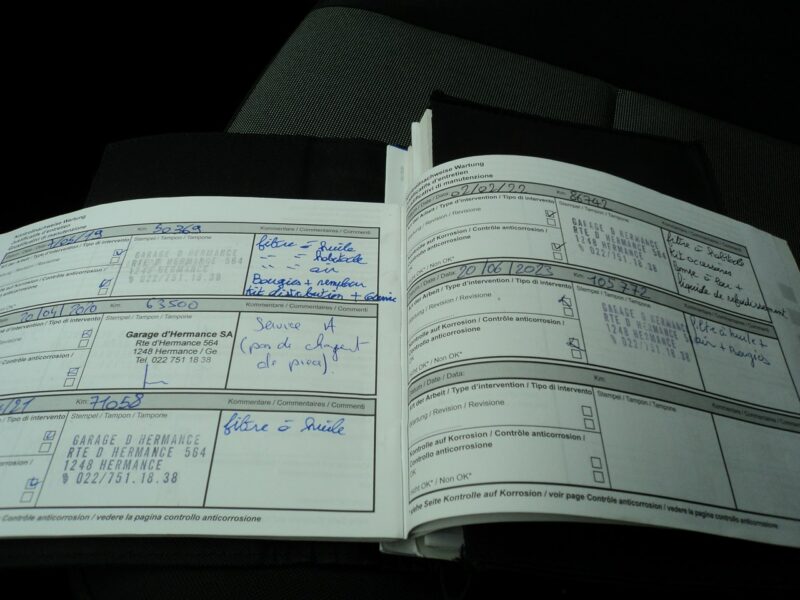 Kontrollnachweise Wartung
Certificats d'entretien
Certificativi di manutenzione
/19
Km: 50769
Kommentare / Commentaires / Commenti
Type d'intervento / Tipo di
Stempel / Tampon / Tampone
GARAGE D HERMANCE
RTE D HERMANCE 564
1248 HERMANCE
022/751.18.38
filtre à huile
" " habitacle
" " air
Bougies +
Kit distribution +
20/04/20/0
Km: 63500
Kommentare / Commentaires / Commenti
Type d'intervention / Tipo di intervento
Stempel / Tampon / Tampone
Garage d'Hermance SA
Rte d'Hermance 564
1248 Hermance / Ge
Tel. 022 751 18 38
Service A
(pas de changement
de pièce).
/21
Km: 71058
Kommentare / Commentaires / Commenti
Type d'intervention / Tipo di intervento
Stempel / Tampon / Tampone
GARAGE D HERMANCE
RTE D HERMANCE 564
1248 HERMANCE
022/751.18.38
filtre à huile
Contrôle anticorrosion / vedere la pagina controllo anticorrosione
Kontrollnachweise Wartung
Certificats d'entretien
Certificativi di manutenzione
Datum / Date / Data: 02/02/22
Km: 86742
Art der Arbeit / Type d'intervention / Tipo di intervento
Stempel / Tampon / Tampone
Kommentare / Commentaires / Commenti
Wartung / Revision / Revisione
Kontrolle auf Korrosion / Contrôle anticorrosion /
Controllo anticorrosione
OK
Nicht OK* / Non OK*
GARAGE D HERMANCE
RTE D HERMANCE 564
1248 HERMANCE
022/751.18.38
filtre à
Kit
pompe à eau +
liquide de refroidissement
Datum / Date / Data: 20/06/2023
Km: 105772
Art der Arbeit / Type d'intervention / Tipo di intervento
Stempel / Tampon / Tampone
Kommentare / Commentaires / Commenti
Wartung / Revision / Revisione
Kontrolle auf Korrosion / Contrôle anticorrosion /
Controllo anticorrosione
OK
Nicht OK* / Non OK*
GARAGE D HERMANCE
RTE D HERMANCE 564
1248 HERMANCE
022/751.18.38
filtre à huile +
air + Bougies
Datum / Date / Data:
Km:
Art der Arbeit / Type d'intervention / Tipo di intervento
Stempel / Tampon / Tampone
Kommentare / Commentaires / Commenti
Wartung / Revision / Revisione
Kontrolle auf Korrosion / Contrôle anticorrosion /
Controllo anticorrosione
OK
Nicht OK* / Non OK*
siehe Seite Kontrolle auf Korrosion / voir page Contrôle anticorrosion / vedere la pagina controllo anticorrosione